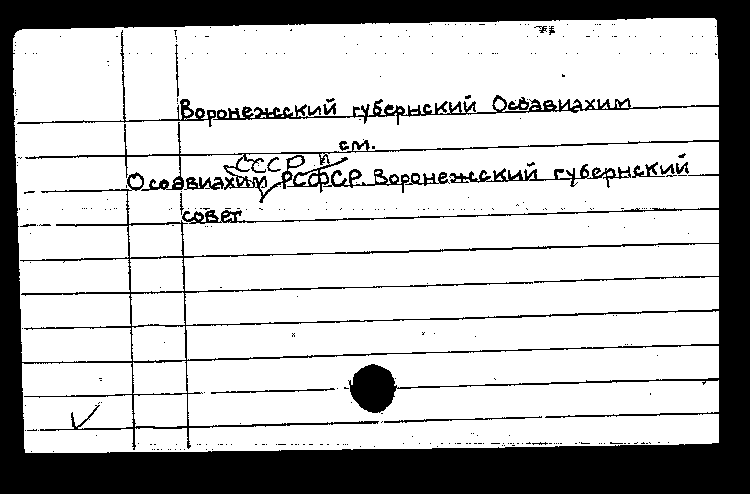 Воронежский губернский Осоавиахим
см.
СССР и
Осоавиахим РСФСР. Воронежский губернский
совет.